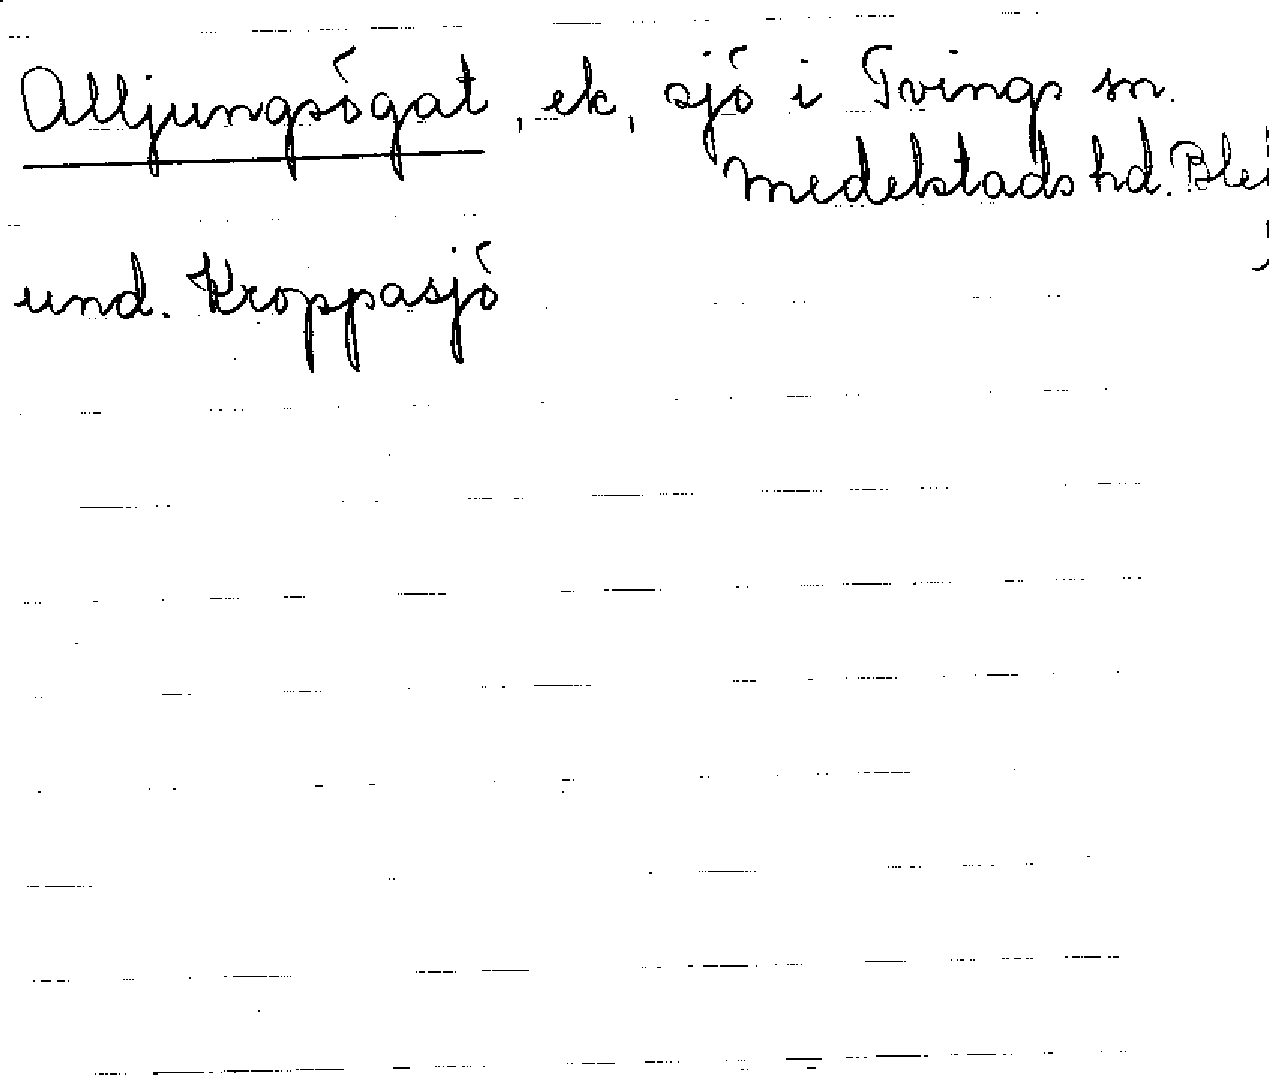 Alljungsögat, ek, sjö i Tvings sn.
Medelstads hd.
und. Kroppasjö